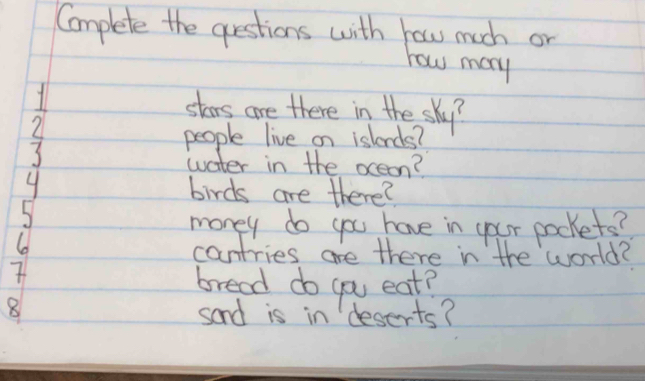 Complete the questions with how much or
how many
1 stars are there in the sky?
2 people live on islands?
3 water in the ocean?
4 birds are there?
5 money do you have in your pockets?
6 countries are there in the world?
7 bread do you eat?
8 sand is in deserts?